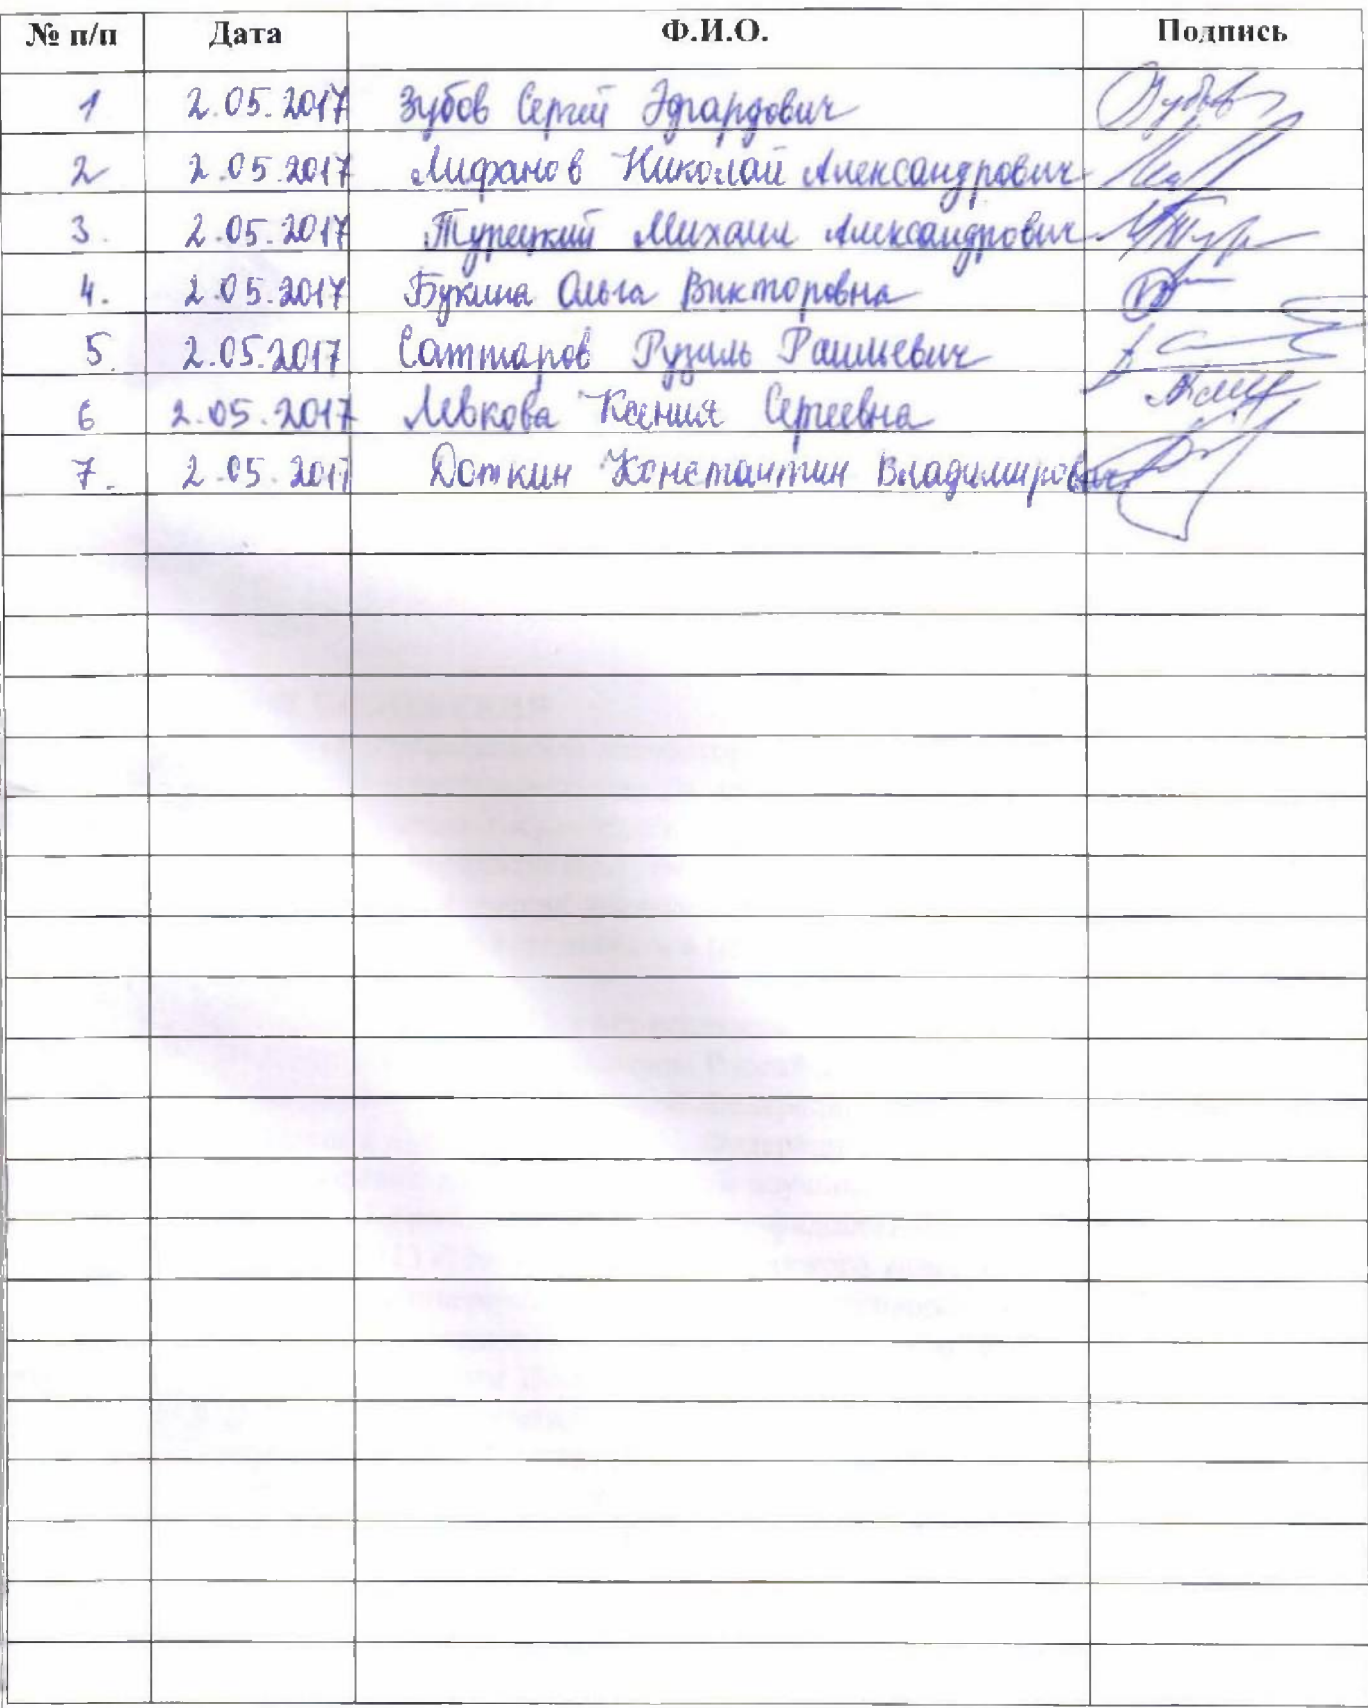 № п/п Дата Ф.И.О. Подпись
1 2.05.2017 Зубов Сергей Эдгардович
2 2.05.2017 Лифанов Николай Александрович
3. 2.05.2017 Турецкий Михаил Александрович
4. 2.05.2017 Букина Ольга Викторовна
5. 2.05.2017 Саттаров Рузиль Раилевич
6 2.05.2017 Левкова Ксения Сергеевна
7. 2.05.2017 Доткин Константин Владимирович